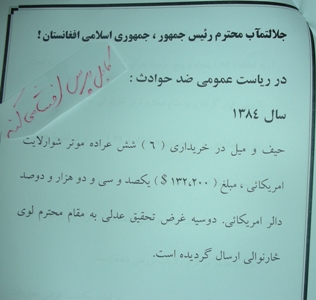 جلالتمآب محترم رئیس جمهور ، جمهوری اسلامی افغانستان !
کابل پرس افشا می کند
در ریاست عمومی ضد حوادث :
سال ١٣٨٤
حیف و میل در خریداری ( ٦ ) شش عراده موتر شوارلایت
امریکائی ، مبلغ ( ١٣٢،٢٠٠ $ ) یکصد و سی و دو هزار و دوصد
دالر امریکائی. دوسیه غرض تحقیق عدلی به مقام محترم لوی
څارنوالی ارسال گردیده است.